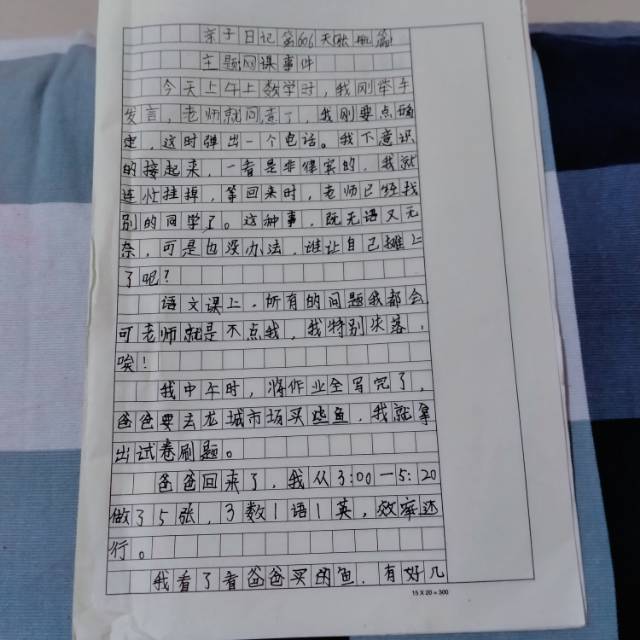 亲子日记第606天张 篇
主题网课事件
今天上午上数学时，我刚举手
发言，老师就同意了，我刚要点确
定，这时弹出一个电话。我下意识
的接起来，一看是非保实的，我就
连忙挂掉，等回来时，老师已经找
别的同学了。这种事，既无语又无
奈，可是也没办法，谁让自己摊上
了呢？
语文课上，所有的问题我都会
可老师就是不点我，我特别失落，
唉！
我中午时，将作业全写完了，
爸爸要去龙城市场买些鱼，我就拿
出试卷刷题。
爸爸回来了，我从3:00一5:20
做了5张，3数1语1英，效率还
行。
我看了看爸爸买的鱼，有好几
15×20=300